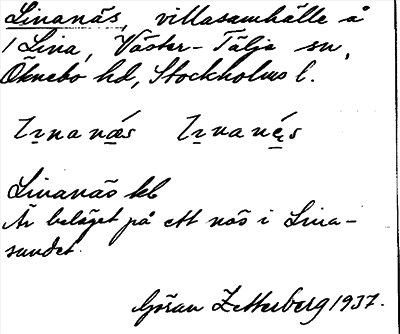 Linanäs, villasamhälle å
1 Lina, Väster-Tälje sn,
Öknebo hd, Stockholms l.
Linanäs kb
Är beläget på ett näs i Lina-
sundet.
Göran Zetterberg 1937.